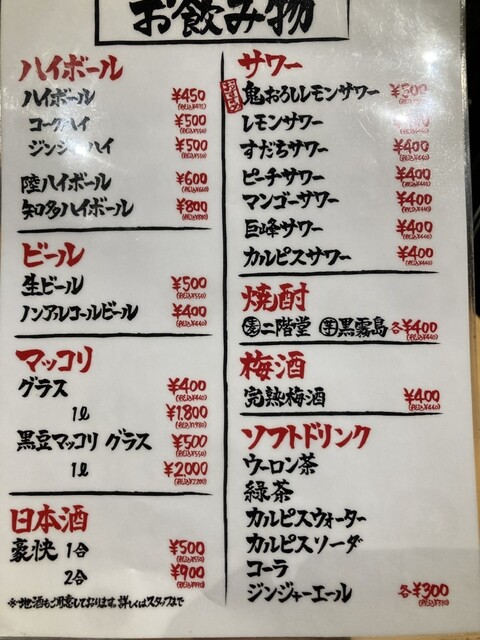 お飲み物
ハイボール
ハイボール ¥450
コークハイ ¥500 (税込¥550)
ジンジャーハイ ¥500 (税込¥550)
陸ハイボール ¥600 (税込¥660)
知多ハイボール ¥800 (税込¥880)
ビール
生ビール ¥500 (税込¥550)
ノンアルコールビール ¥400 (税込¥440)
マッコリ
グラス ¥400 (税込¥440)
1ℓ ¥1,800 (税込¥1,980)
黒豆マッコリ グラス ¥500 (税込¥550)
1ℓ ¥2,000 (税込¥2,200)
日本酒
豪快 1合 ¥500 (税込¥550)
2合 ¥900 (税込¥990)
※地酒もご用意しております。詳しくはスタッフまで
サワー
鬼おろしレモンサワー ¥500 (税込¥550)
レモンサワー
すだちサワー ¥400 (税込¥440)
ピーチサワー ¥400 (税込¥440)
マンゴーサワー ¥400 (税込¥440)
巨峰サワー ¥400 (税込¥440)
カルピスサワー ¥400 (税込¥440)
焼酎
麦 二階堂 芋 黒霧島 各¥400 (税込¥440)
梅酒
完熟梅酒 ¥400 (税込¥440)
ソフトドリンク
ウーロン茶
緑茶
カルピスウォーター
カルピスソーダ
コーラ
ジンジャーエール 各¥300 (税込¥330)